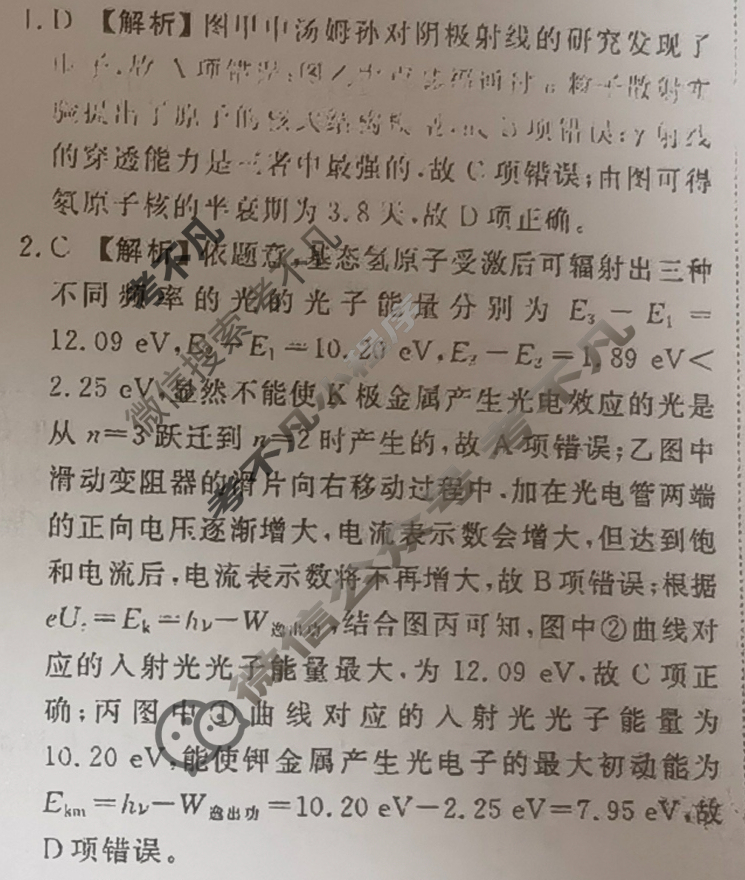 1.D 【解析】图甲中汤姆孙对阴极射线的研究发现了
电子,故A项错误;图乙中卢瑟福通过α粒子散射实
验提出了原子的核式结构模型,故B项错误;γ射线
的穿透能力是三者中最强的,故C项错误;由图可得
氡原子核的半衰期为3.8天,故D项正确。
2.C 【解析】依题意,基态氢原子受激后可辐射出三种
不同频率的光的光子能量分别为 E₃-E₁=
12.09 eV,E₂-E₁=10.20 eV,E₃-E₂=1.89 eV<
2.25 eV,显然不能使K极金属产生光电效应的光是
从n=3跃迁到n=2时产生的,故A项错误;乙图中
滑动变阻器的滑片向右移动过程中,加在光电管两端
的正向电压逐渐增大,电流表示数会增大,但达到饱
和电流后,电流表示数将不再增大,故B项错误;根据
eU꜀=Eₖ=hν-W逸出功,结合图丙可知,图中②曲线对
应的入射光光子能量最大,为12.09 eV,故C项正
确;丙图中①曲线对应的入射光光子能量为
10.20 eV,能使钾金属产生光电子的最大初动能为
Eₖₘ=hν-W逸出功=10.20 eV-2.25 eV=7.95 eV,故
D项错误。
考不凡
微信搜索考不凡
考不凡小程序
微信公众号考不凡